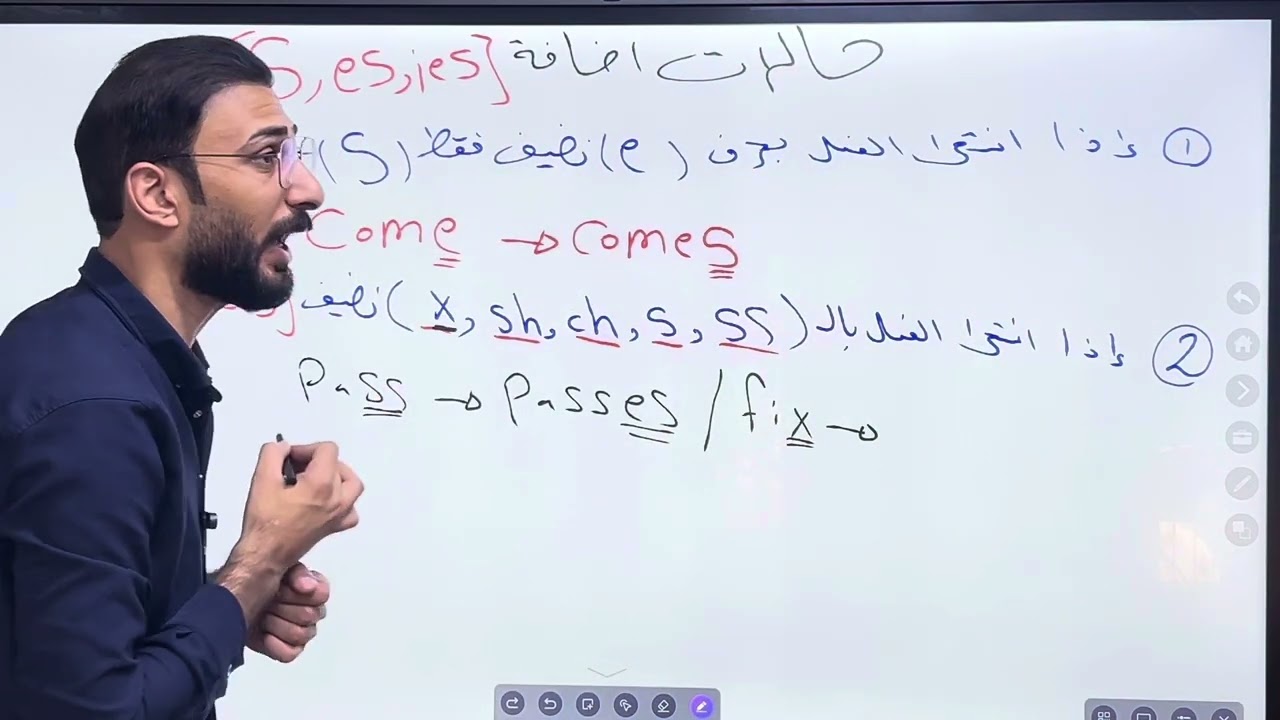 حالات اضافة [S, es, ies]
① إذا انتهى الفعل بحرف (e) نضيف فقط (S)
Come → Comes
② إذا انتهى الفعل بالـ (x, sh, ch, s, ss) نضيف
Pass → Passes / fix →